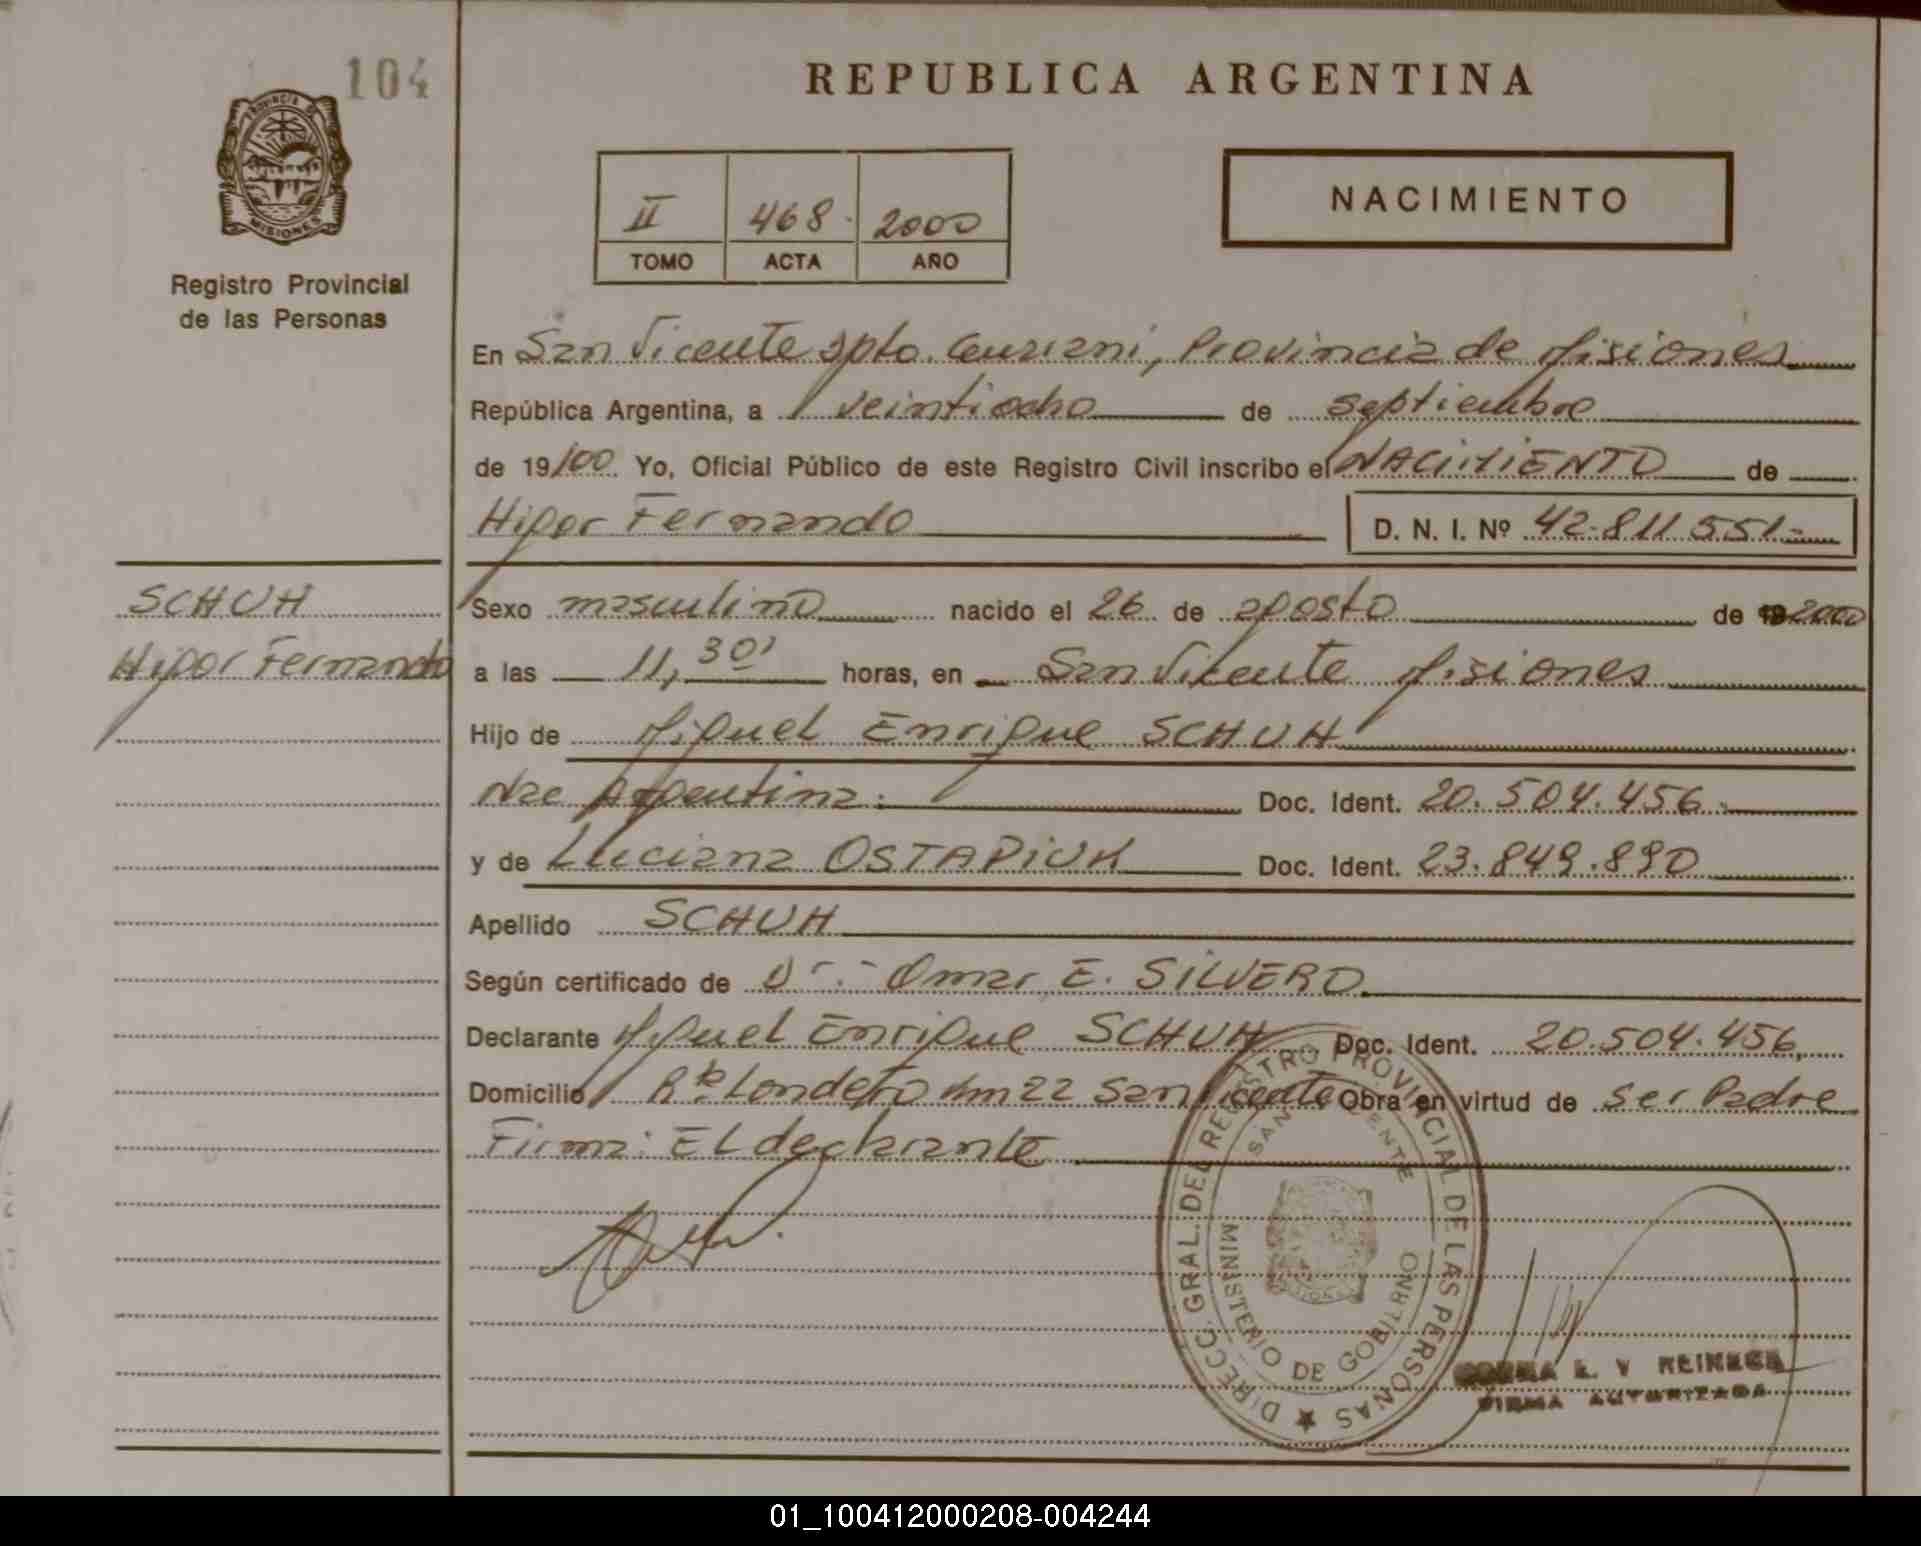 104
PROVINCIA DE
MISIONES
Registro Provincial
de las Personas
REPUBLICA ARGENTINA
II 468 2000
TOMO ACTA AÑO
NACIMIENTO
En San Vicente Dpto. Guarani, Provincia de Misiones
República Argentina, a veintiocho de septiembre
de 19/00 Yo, Oficial Público de este Registro Civil inscribo el NACIMIENTO de
Higor Fernando D. N. I. Nº 42.811.551.-
SCHUH
Higor Fernando
Sexo masculino nacido el 26 de agosto de 2000
a las 11,30' horas, en San Vicente Misiones
Hijo de Miguel Enrique SCHUH
Nac Argentina. Doc. Ident. 20.504.456.
y de Luciana OSTAPIUK Doc. Ident. 23.849.890
Apellido SCHUH
Según certificado de Dr. Omar E. SILVERO
Declarante Miguel Enrique SCHUH Doc. Ident. 20.504.456
Domicilio Rte Londero Km 22 San Vicente Obra en virtud de ser Padre
Firma: El declarante
DIRECC. GRAL. DEL REGISTRO PROVINCIAL DE LAS PERSONAS
SAN VICENTE
MINISTERIO DE GOBIERNO
E. V REINECK
FIRMA AUTORIZADA
01_100412000208-004244